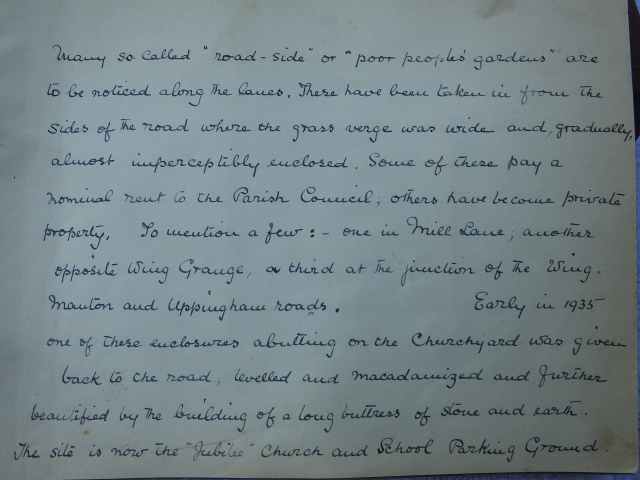 Many so called "road-side" or "poor people's gardens" are
to be noticed along the lanes. These have been taken in from the
sides of the road where the grass verge was wide and, gradually,
almost imperceptibly enclosed. Some of these pay a
nominal rent to the Parish Council; others have become private
property. To mention a few:- one in Mill Lane; another
opposite Wing Grange, a third at the junction of the Wing.
Manton and Uppingham roads. Early in 1935
one of these enclosures abutting on the Churchyard was given
back to the road, levelled and macadamized and further
beautified by the building of a long buttress of stone and earth.
The site is now the "Jubilee" Church and School Parking Ground.